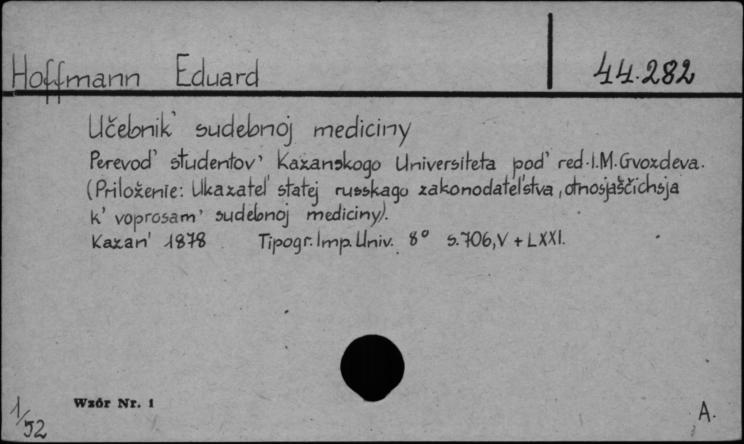 Hoffmann Eduard 44.282
Učebnik' sudebnoj mediciny
Perevod' studentov' Kazanskogo Universiteta pod' red. I.M. Gvozdeva.
(Priloženie: Ukazatel' statej russkago zakonodatel'stva, otnosjaščichsja
k' voprosam' sudebnoj mediciny).
Kazan' 1878 Tipogr. Imp. Univ. 8° s. 706, V + LXXI.
Wzór Nr. 1
1/52
A.